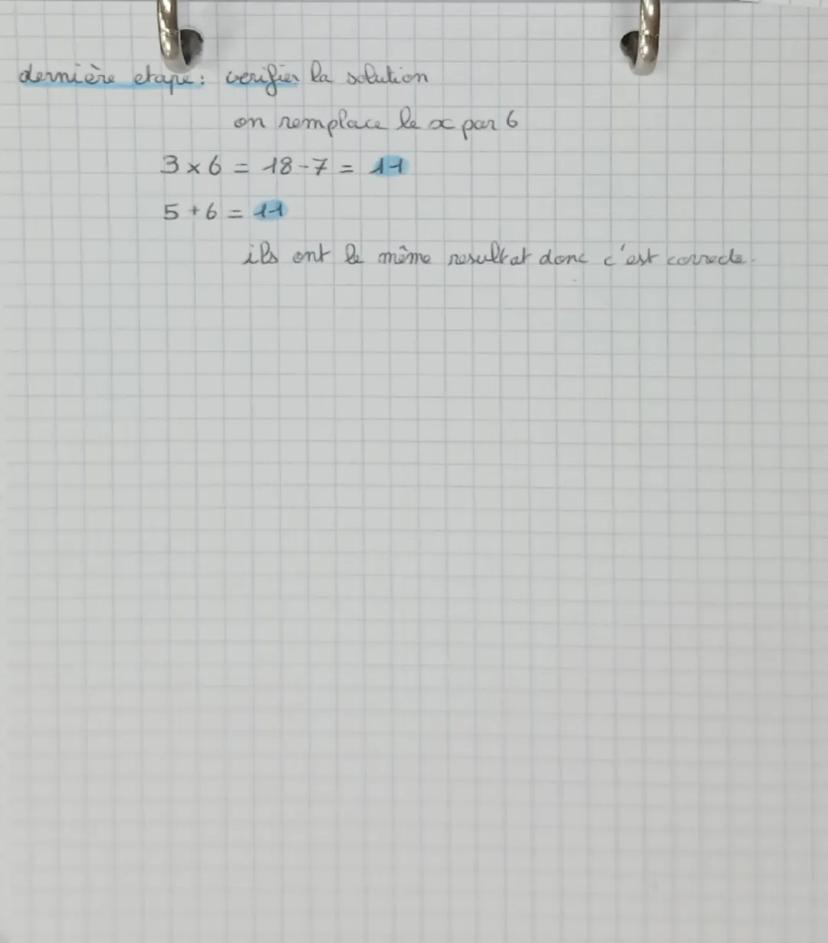 dernière etape : verifier la solution
on remplace le x par 6
3 × 6 = 18 - 7 = 11
5 + 6 = 11
ils ont le même resultat donc c'est correcte.